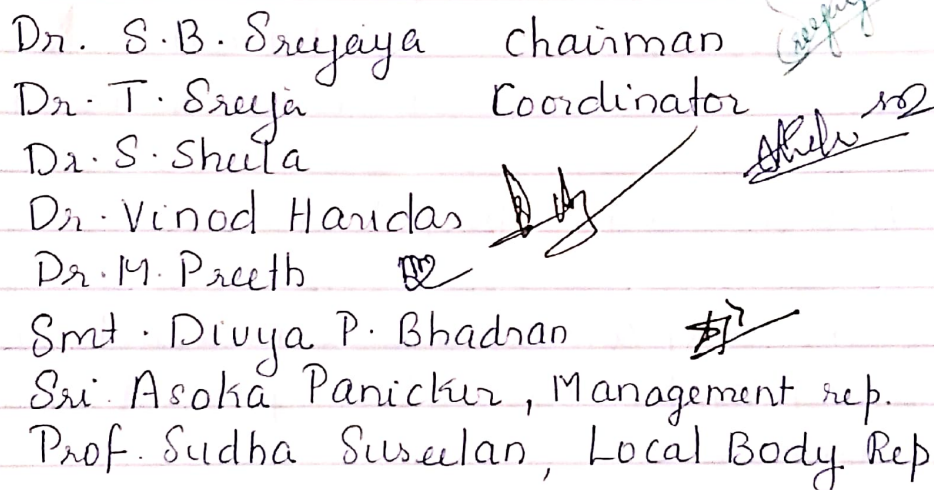 Dr. S.B. Sreejaya Chairman
Dr. T. Sreeja Coordinator
Dr. S. Sheela
Dr. Vinod Haridas
Dr. M. Preeth
Smt. Divya P. Bhadran
Sri. Asoka Panicker, Management rep.
Prof. Sudha Suseelan, Local Body Rep